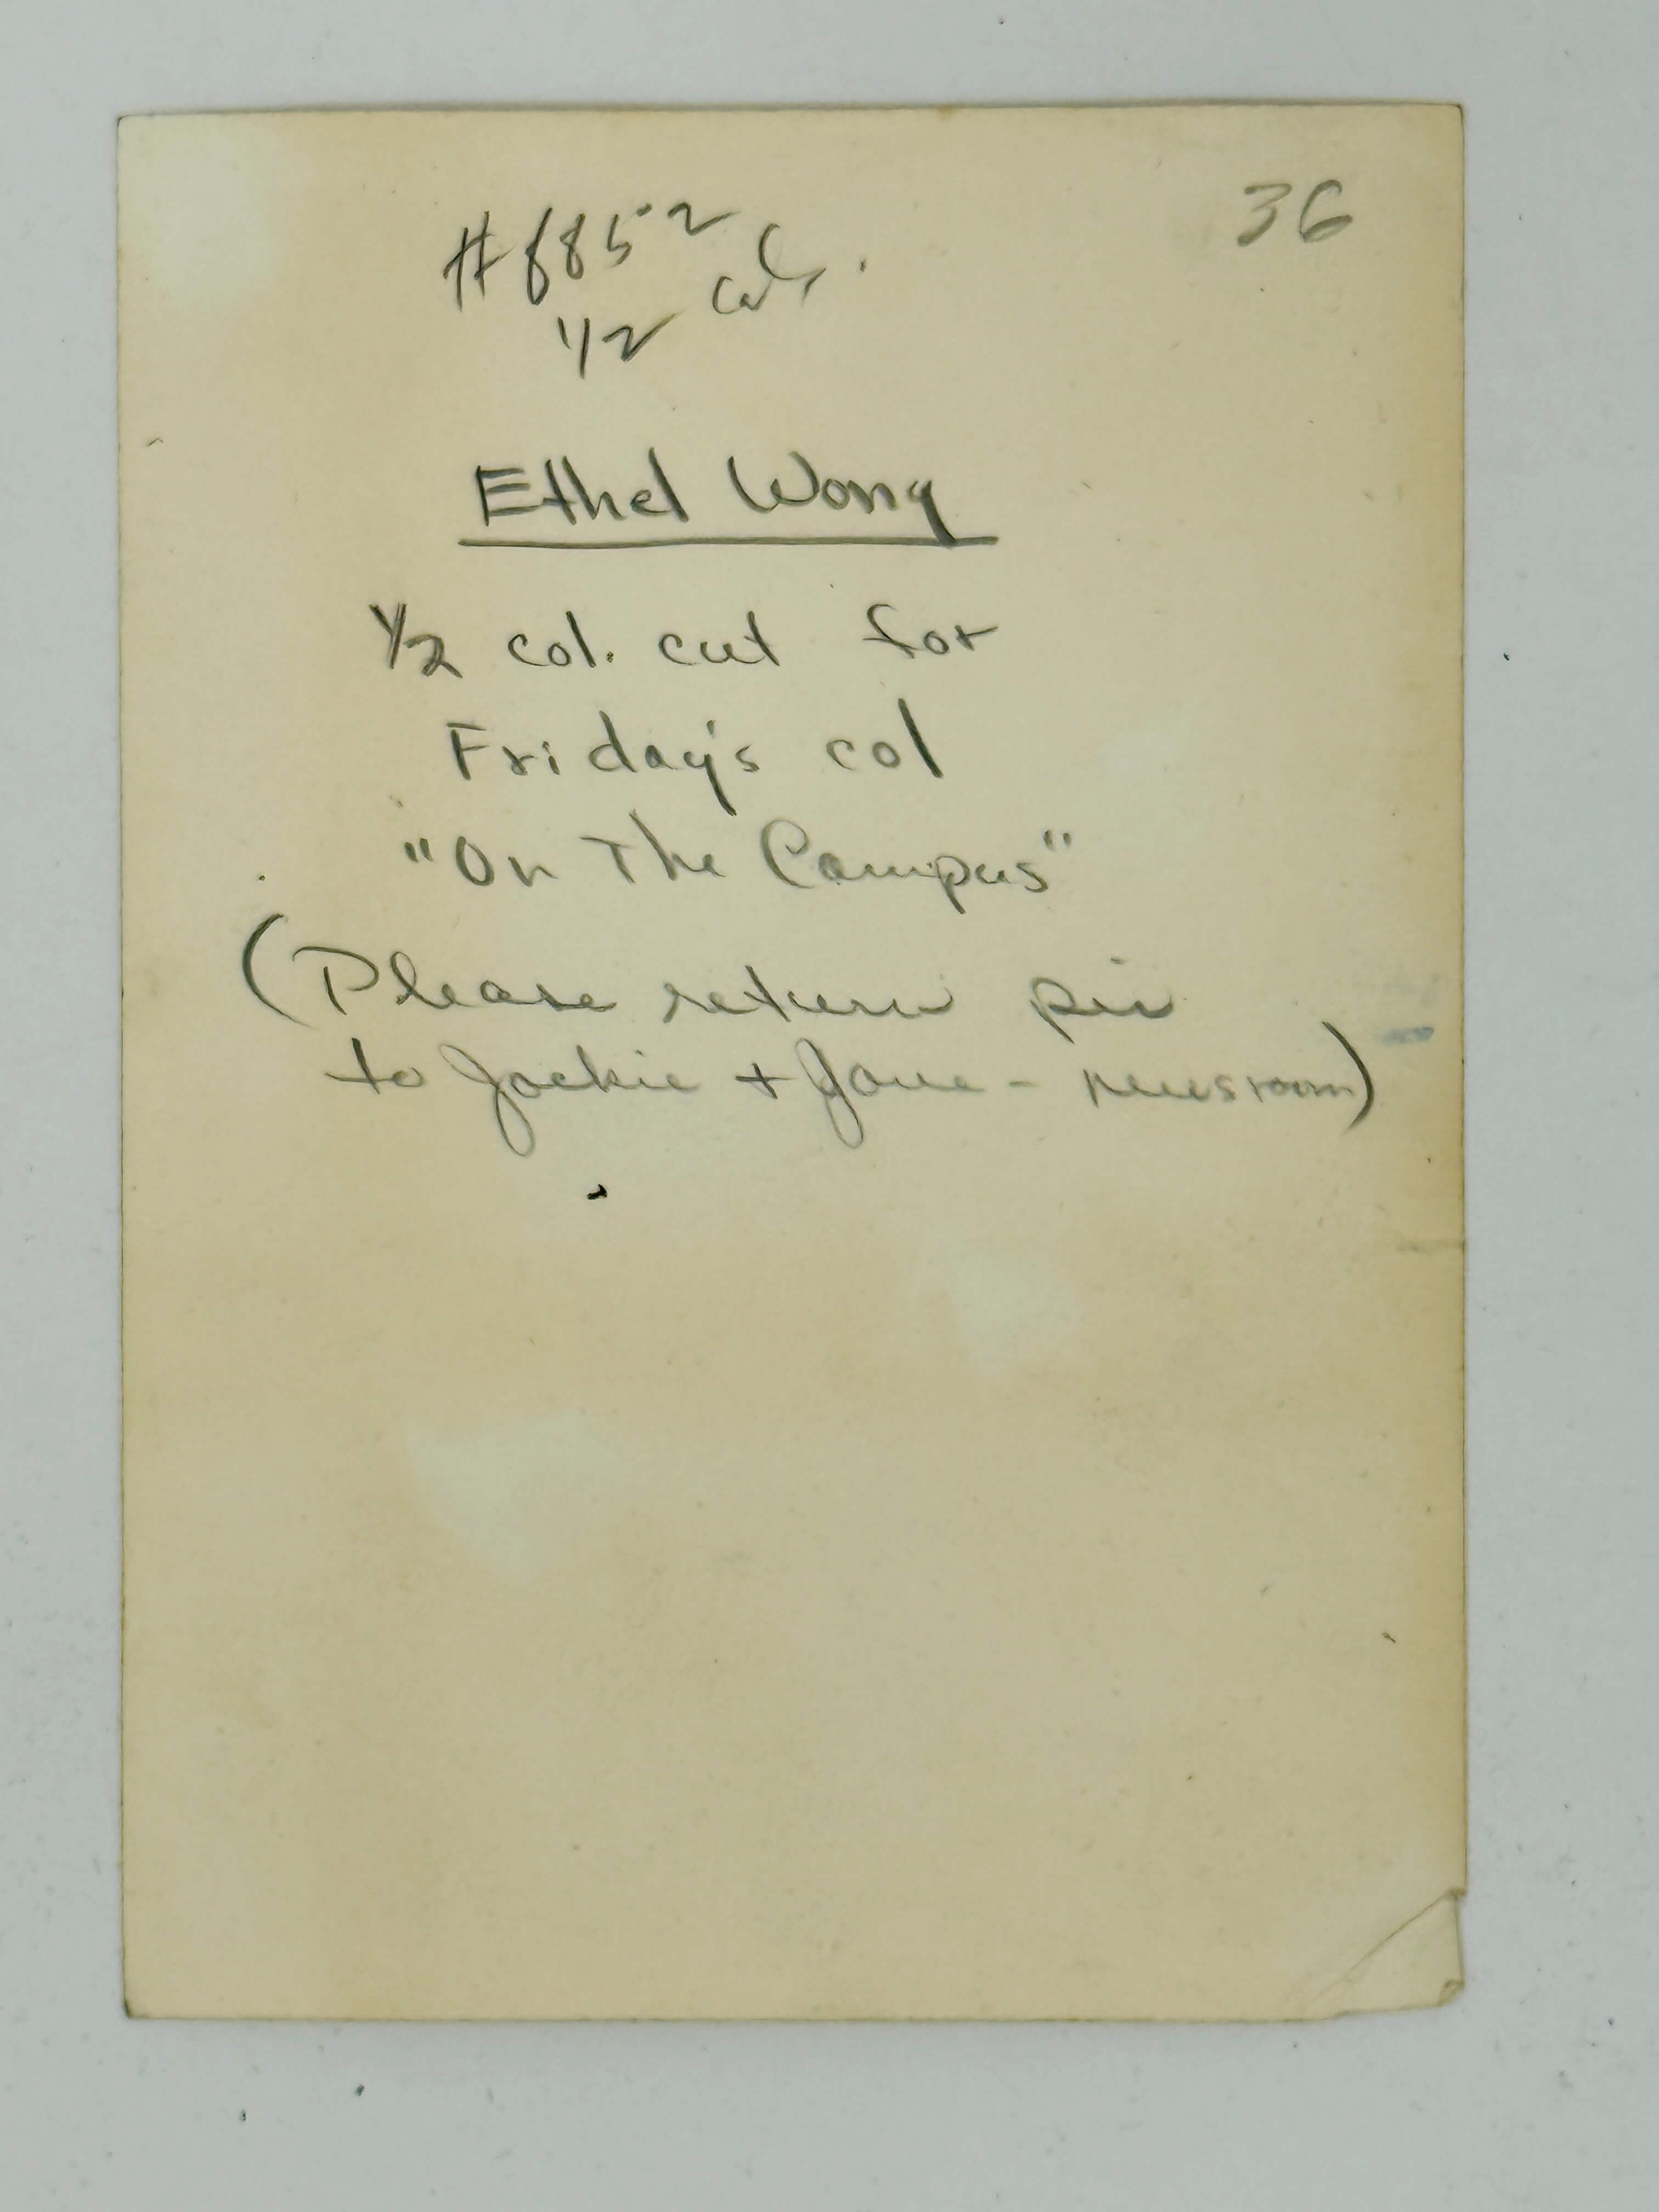 36
#8852
1/2 col.
Ethel Wong
1/2 col. cut for
Friday's col
"On The Campus"
(Please return pix
to Jackie + Jane - newsroom)